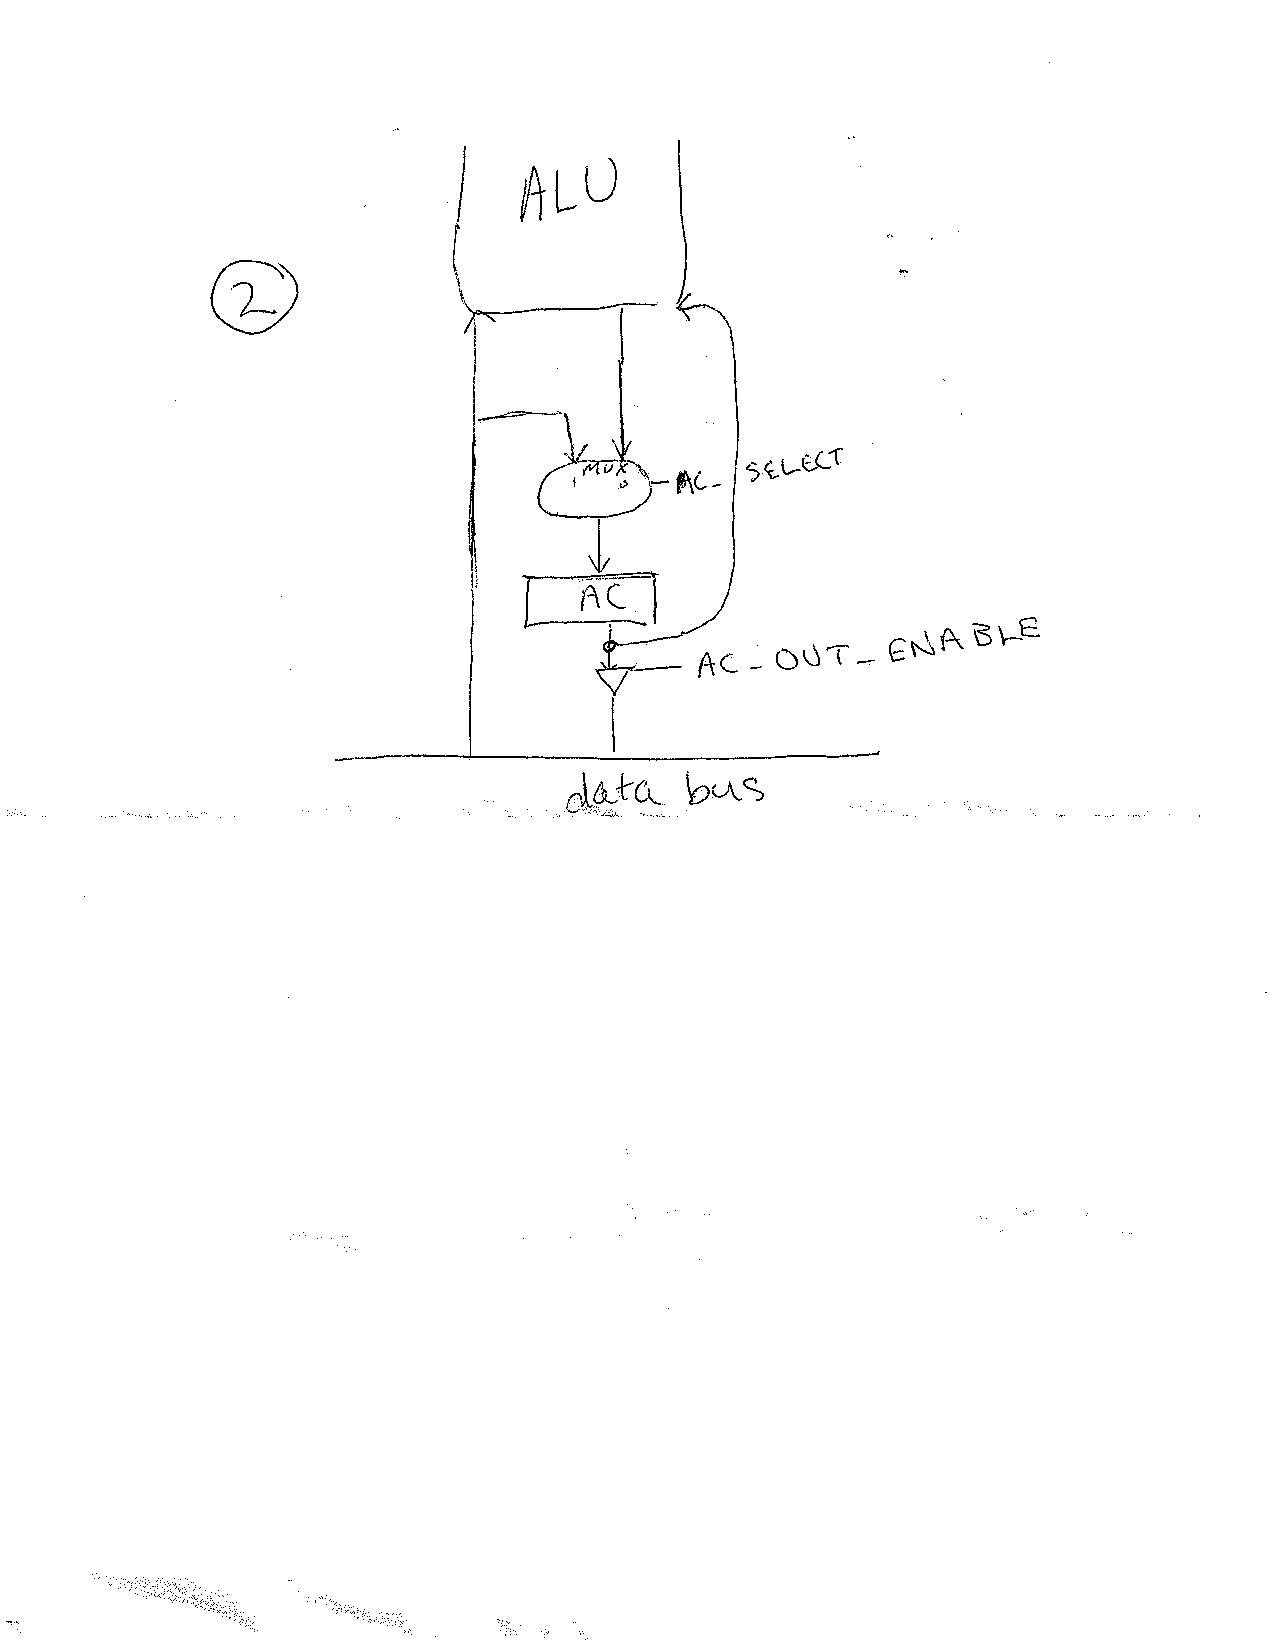 ALU
2
MUX
1 0
AC_SELECT
AC
AC_OUT_ENABLE
data bus